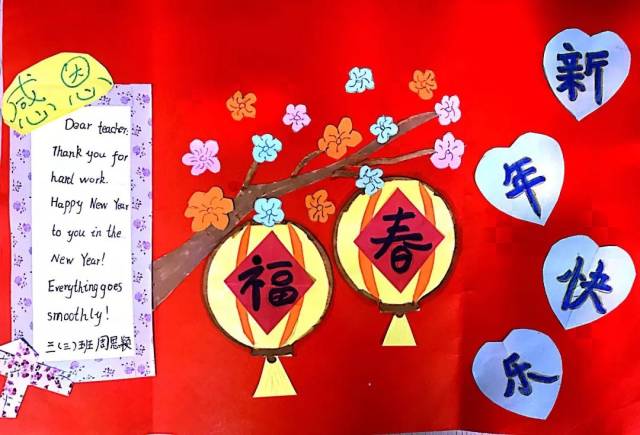 感恩
Dear teacher:
Thank you for
hard work.
Happy New Year
to you in the
New Year!
Everything goes
smoothly!
三(三)班周思颖
福
春
新
年
快
乐